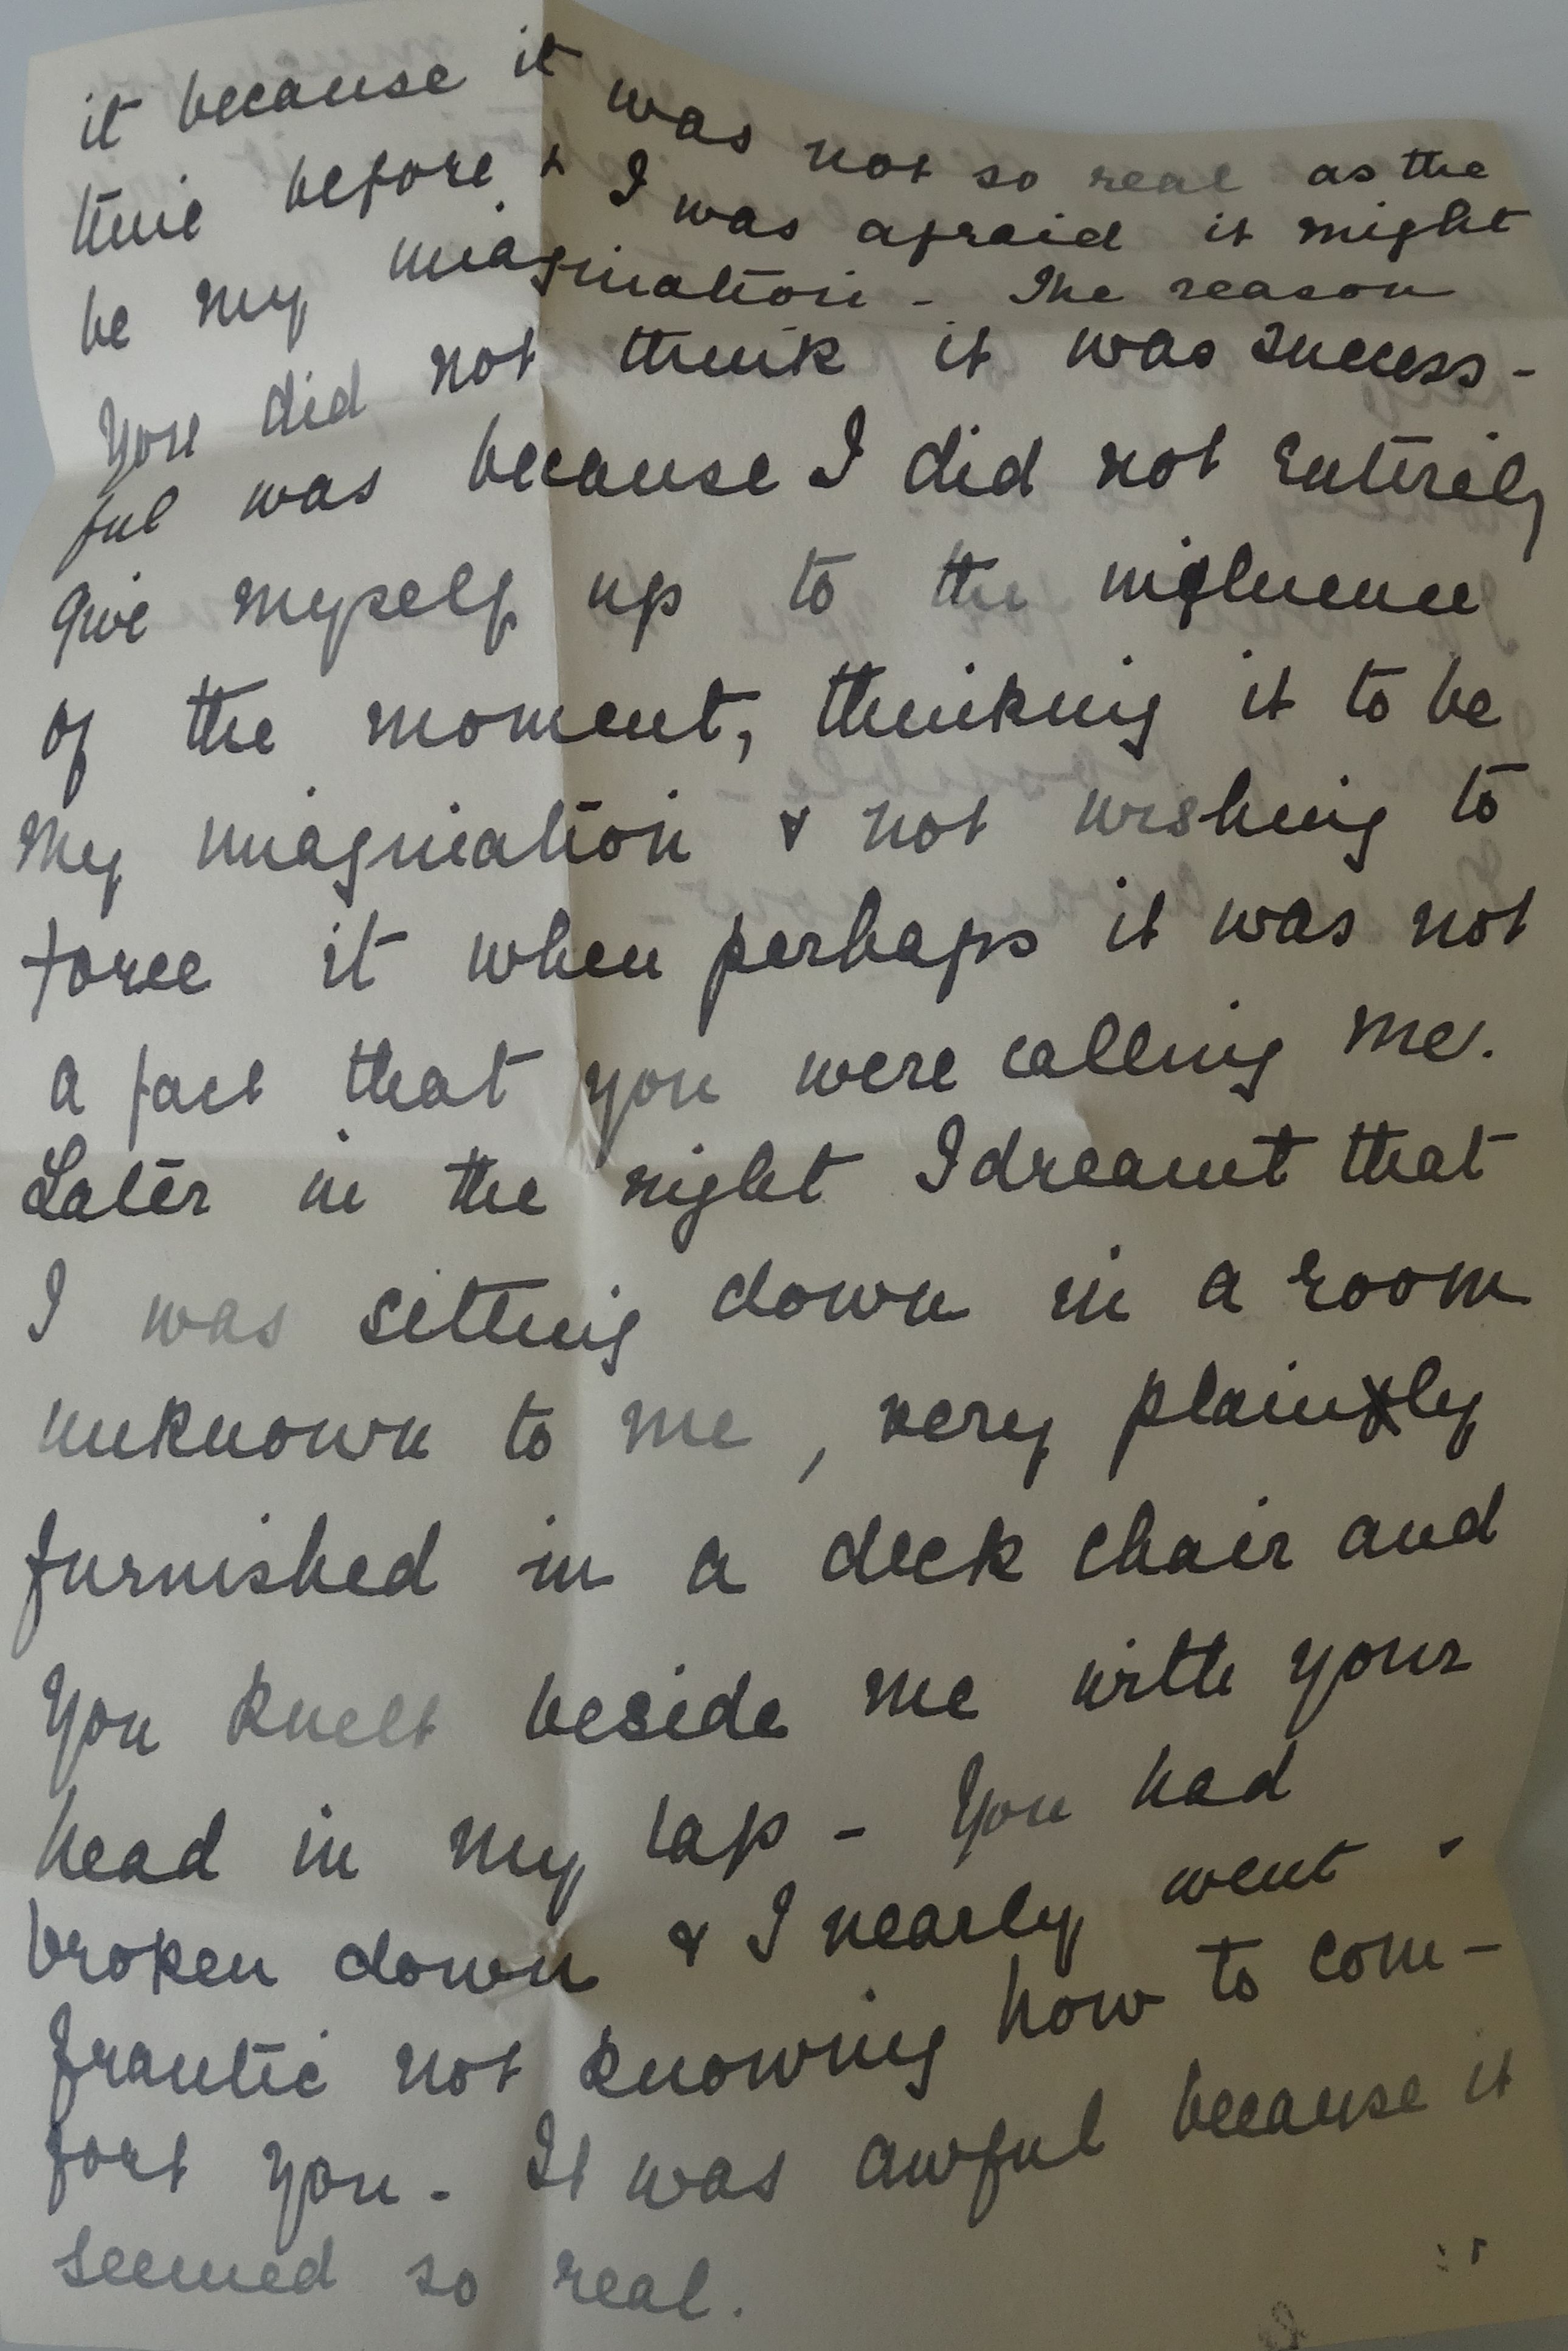 it because it was not so real as the
time before & I was afraid it might
be my imagination - The reason
you did not think it was success-
ful was because I did not entirely
give myself up to the influence
of the moment, thinking it to be
my imagination & not wishing to
force it when perhaps it was not
a fact that you were calling me.
Later in the night I dreamt that
I was sitting down in a room
unknown to me, very plainly
furnished in a deck chair and
you knelt beside me with your
head in my lap - You had
broken down & I nearly went
frantic not knowing how to com-
fort you - It was awful because it
seemed so real.